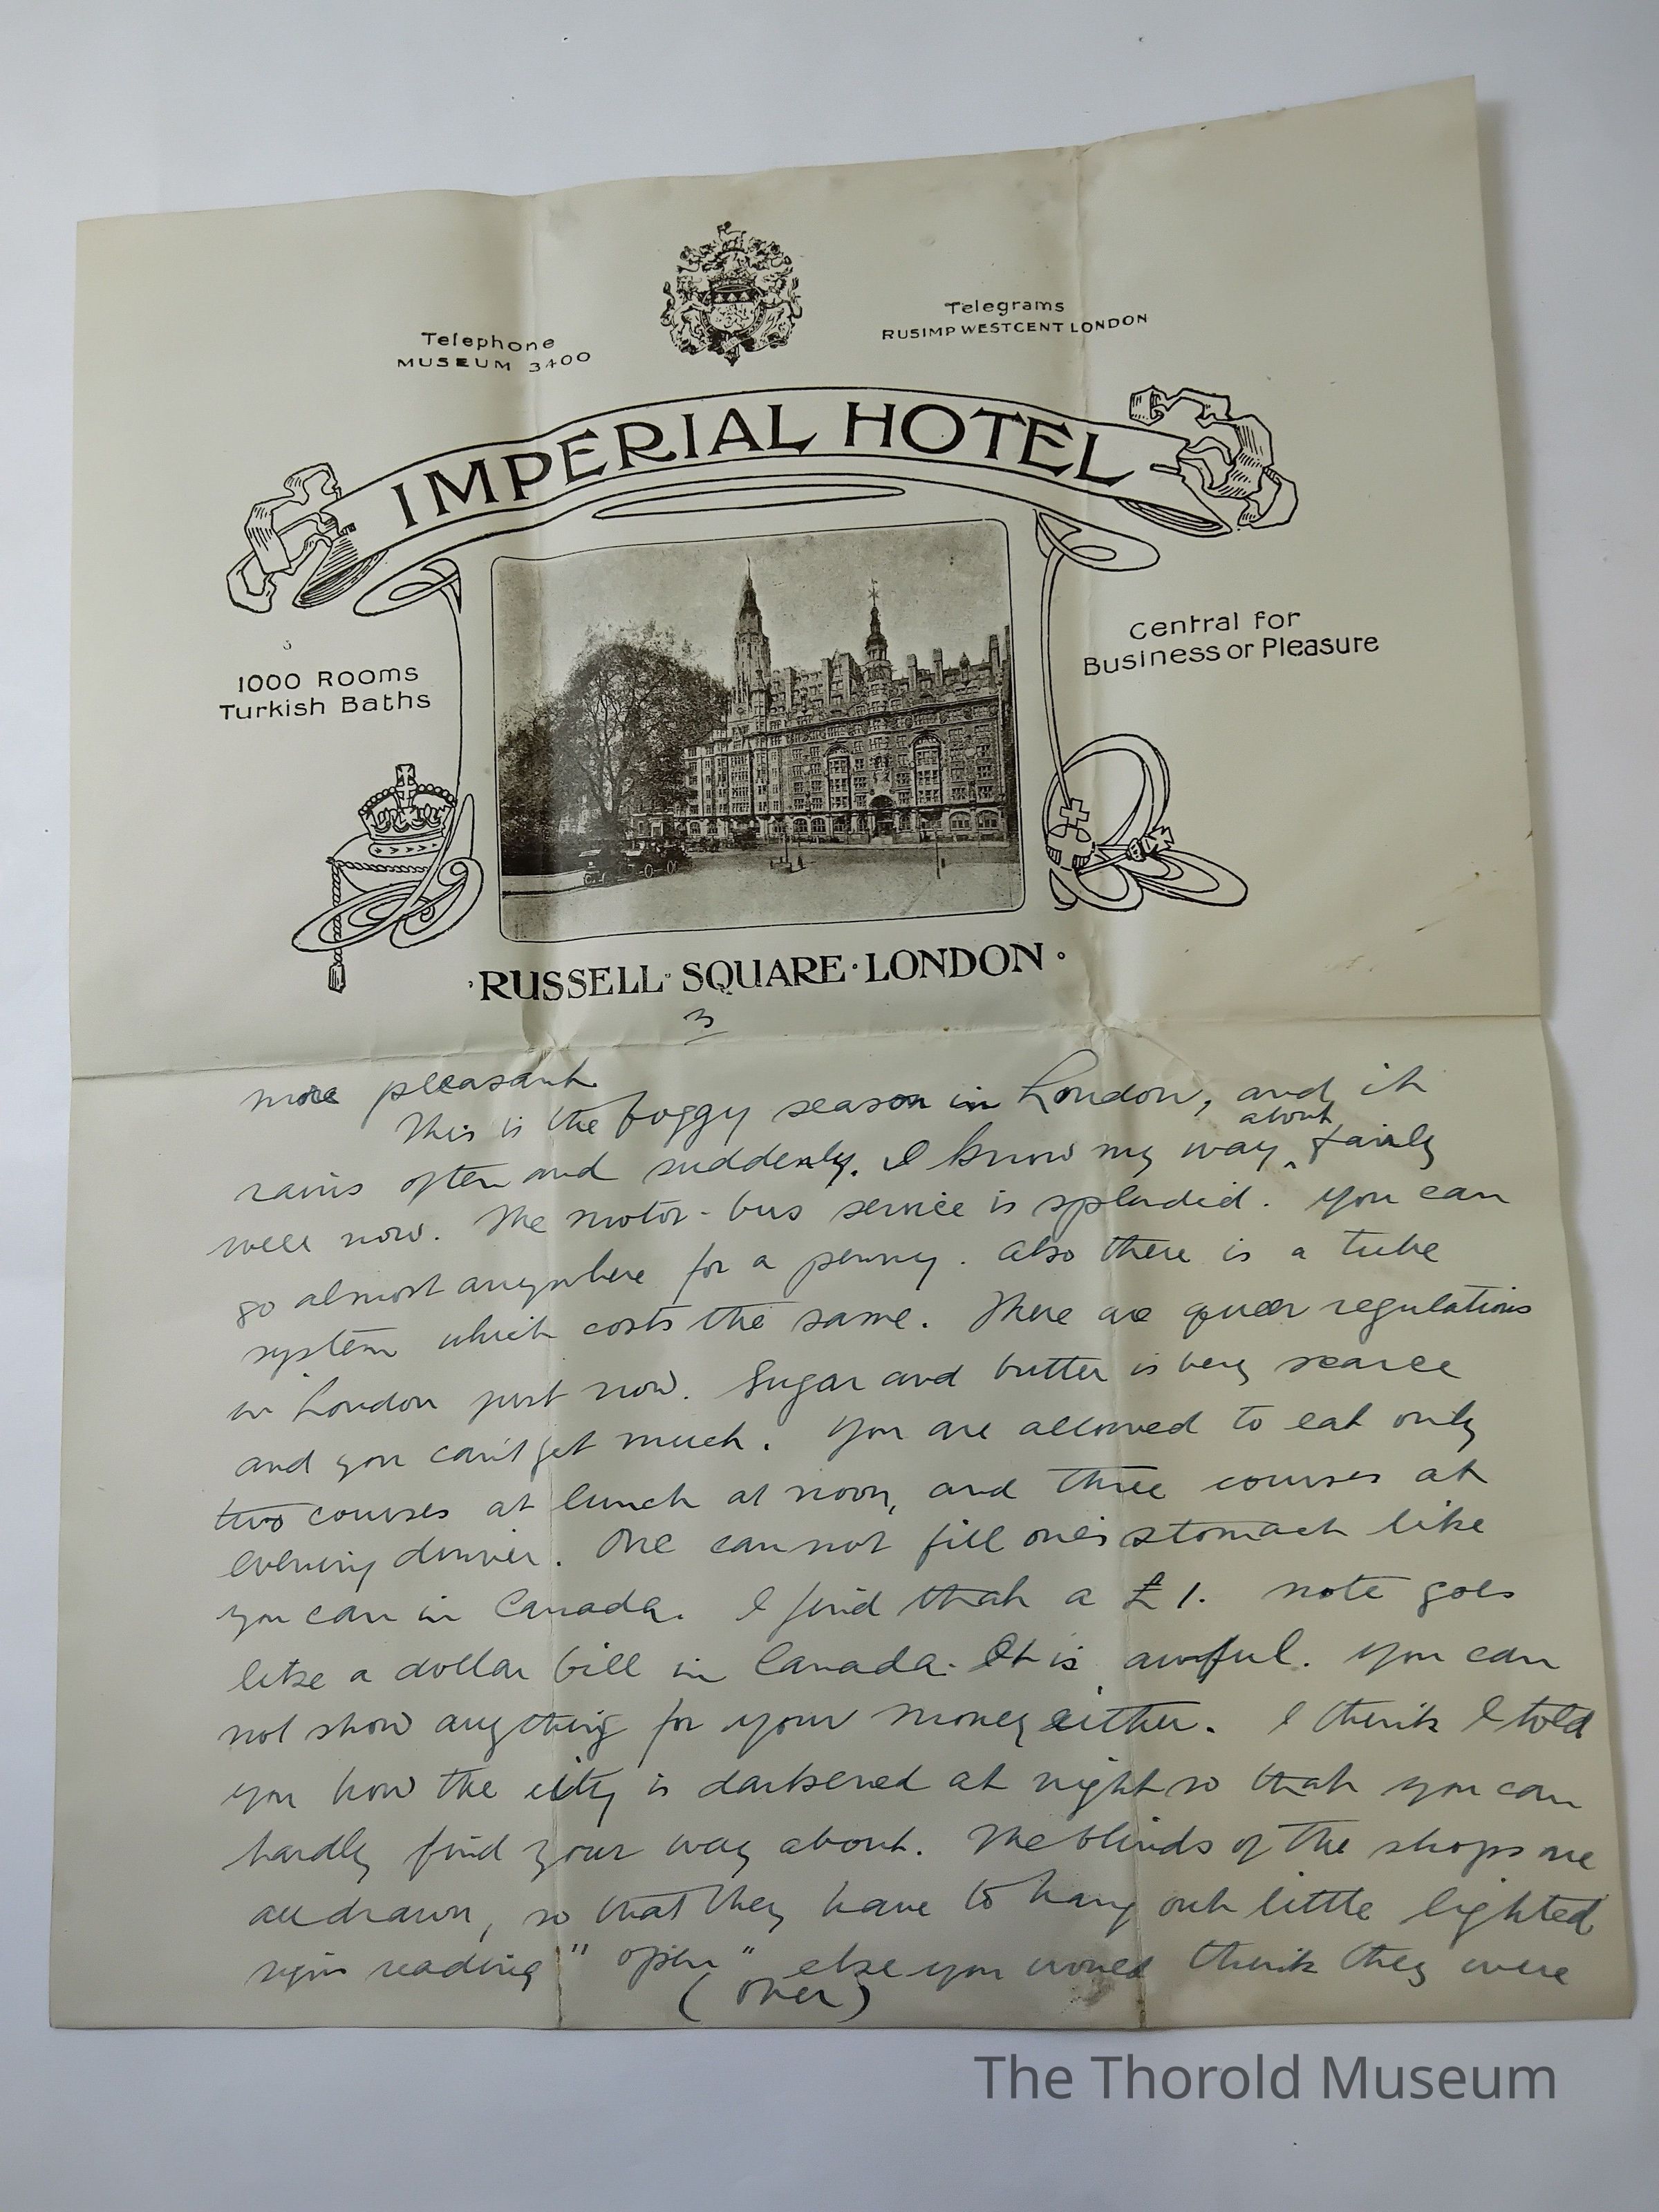 Telephone
MUSEUM 3400
Telegrams
RUSIMP WESTCENT LONDON
IMPERIAL HOTEL
1000 Rooms
Turkish Baths
Central for
Business or Pleasure
·RUSSELL·SQUARE·LONDON·
3
more pleasant.
This is the foggy season in London, and it
rains often and suddenly. I know my way about fairly
well now. The motor-bus service is splendid. You can
go almost anywhere for a penny. Also there is a tube
system which costs the same. There are queer regulations
in London just now. Sugar and butter is very scarce
and you can't get much. You are allowed to eat only
two courses at lunch at noon, and three courses at
evening dinner. One can not fill one's stomach like
you can in Canada. I find that a £1. note goes
like a dollar bill in Canada. It is awful. You can
not show anything for your money either. I think I told
you how the city is darkened at night so that you can
hardly find your way about. The blinds of the shops are
all drawn, so that they have to hang out little lighted
signs reading "open" else you would think they were
(over)
The Thorold Museum